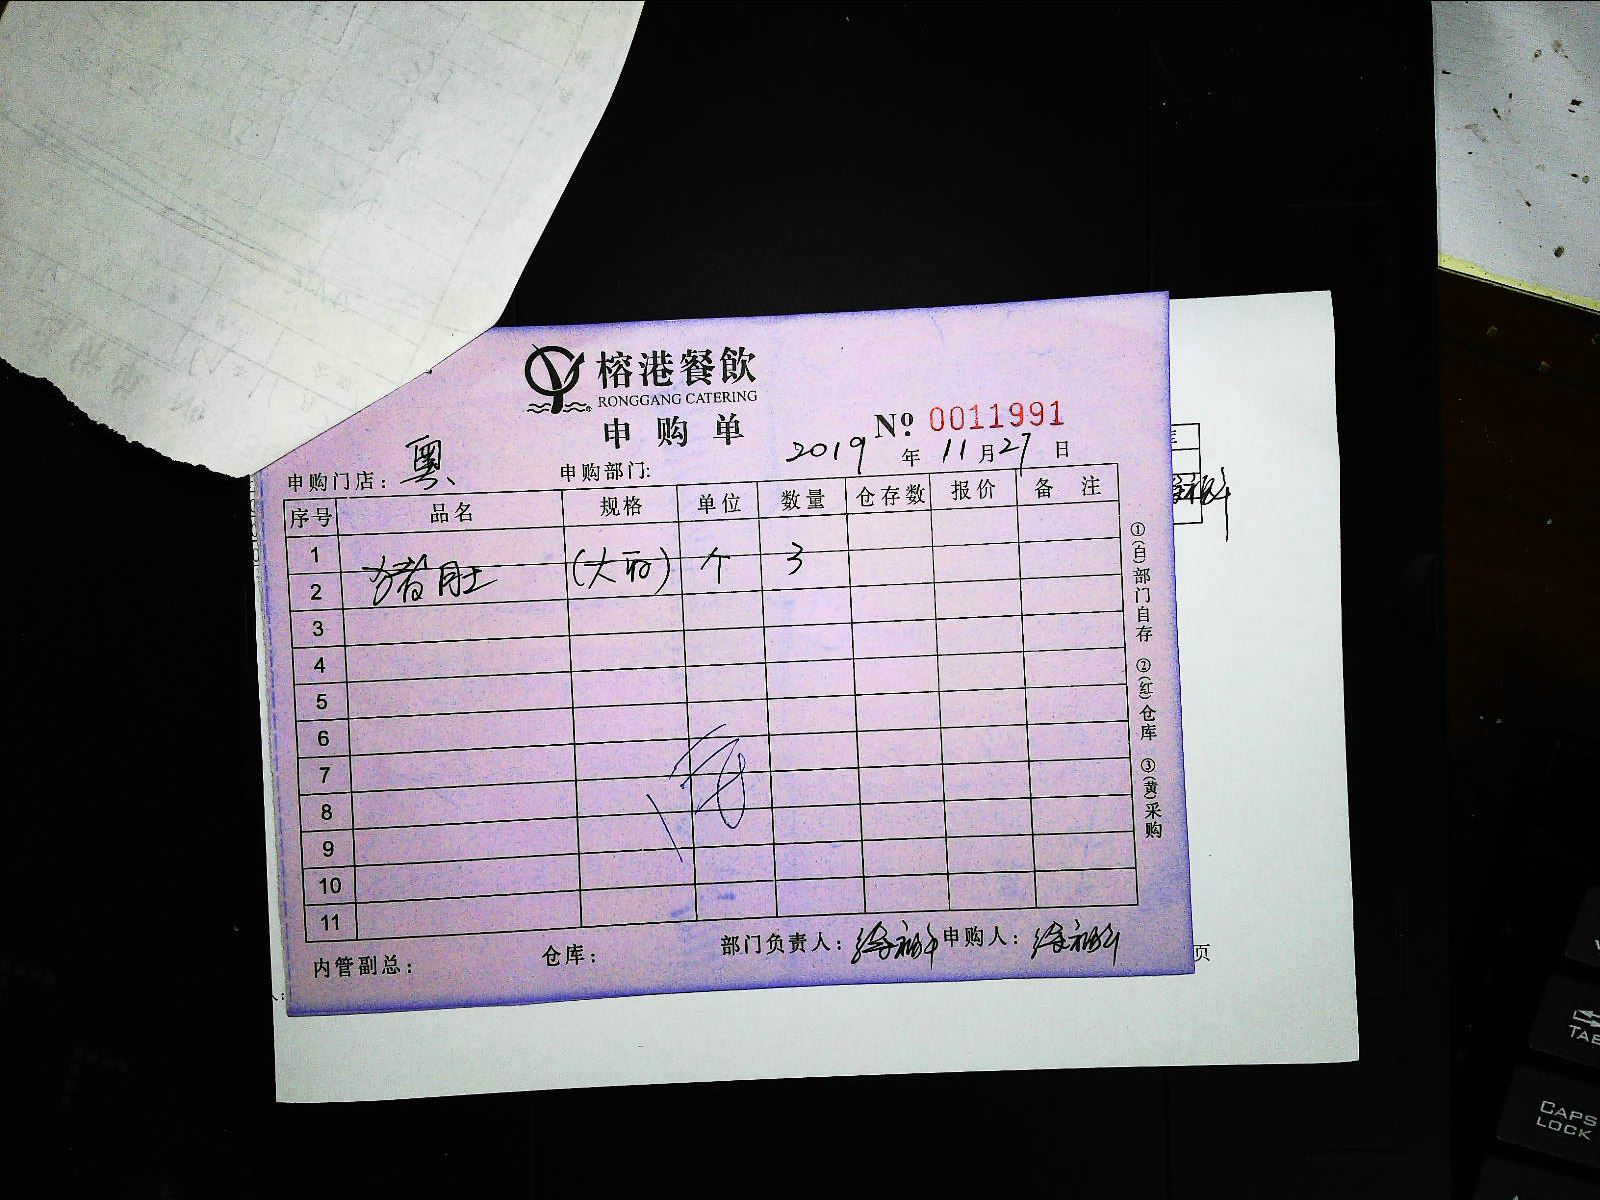 榕港餐飲
RONGGANG CATERING
申购单
№ 0011991
2019 年 11 月 27 日
申购门店: 粤 申购部门:
序号 品名 规格 单位 数量 仓存数 报价 备 注
1
2 猪肚 (大) 个 3
3
4
5
6
7
8
9
10
11
①(白)部门自存 ②(红)仓库 ③(黄)采购
内管副总: 仓库: 部门负责人: 申购人:
页
TAB
CAPS
LOCK